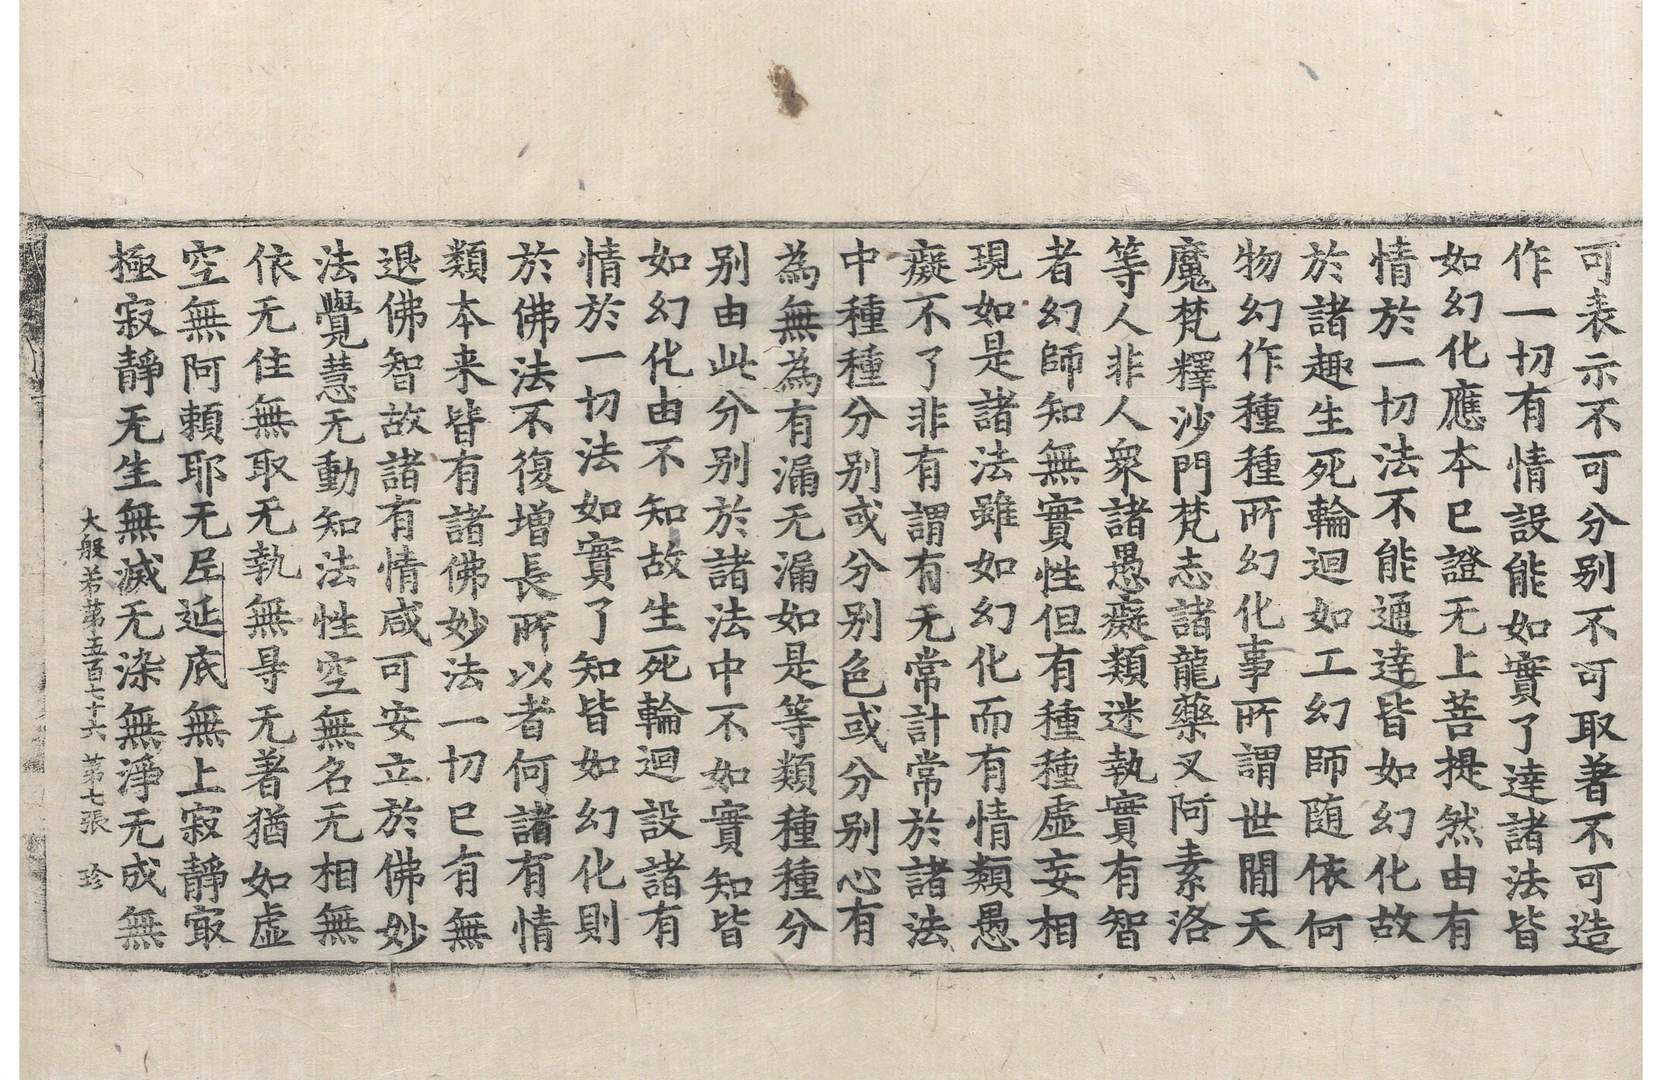 可表示不可分别不可取著不可造
作一切有情設能如實了達諸法皆
如幻化應本已證无上菩提然由有
情於一切法不能通達皆如幻化故
於諸趣生死輪迴如工幻師随依何
物幻作種種所幻化事所謂世間天
魔梵釋沙門梵志諸龍藥叉阿素洛
等人非人衆諸愚癡類迷執實有智
者幻師知無實性但有種種虛妄相
現如是諸法雖如幻化而有情類愚
癡不了非有謂有无常計常於諸法
中種種分别或分别色或分别心有
為無為有漏无漏如是等類種種分
别由此分别於諸法中不如實知皆
如幻化由不知故生死輪迴設諸有
情於一切法如實了知皆如幻化則
於佛法不復增長所以者何諸有情
類本来皆有諸佛妙法一切已有無
退佛智故諸有情咸可安立於佛妙
法覺慧无動知法性空無名无相無
依无住無取无執無㝵无著猶如虛
空無阿賴耶无𡰱延底無上寂靜㝡
極寂靜无生無滅无染無淨无成無
大般苐苐五百七十六 苐七張 珎